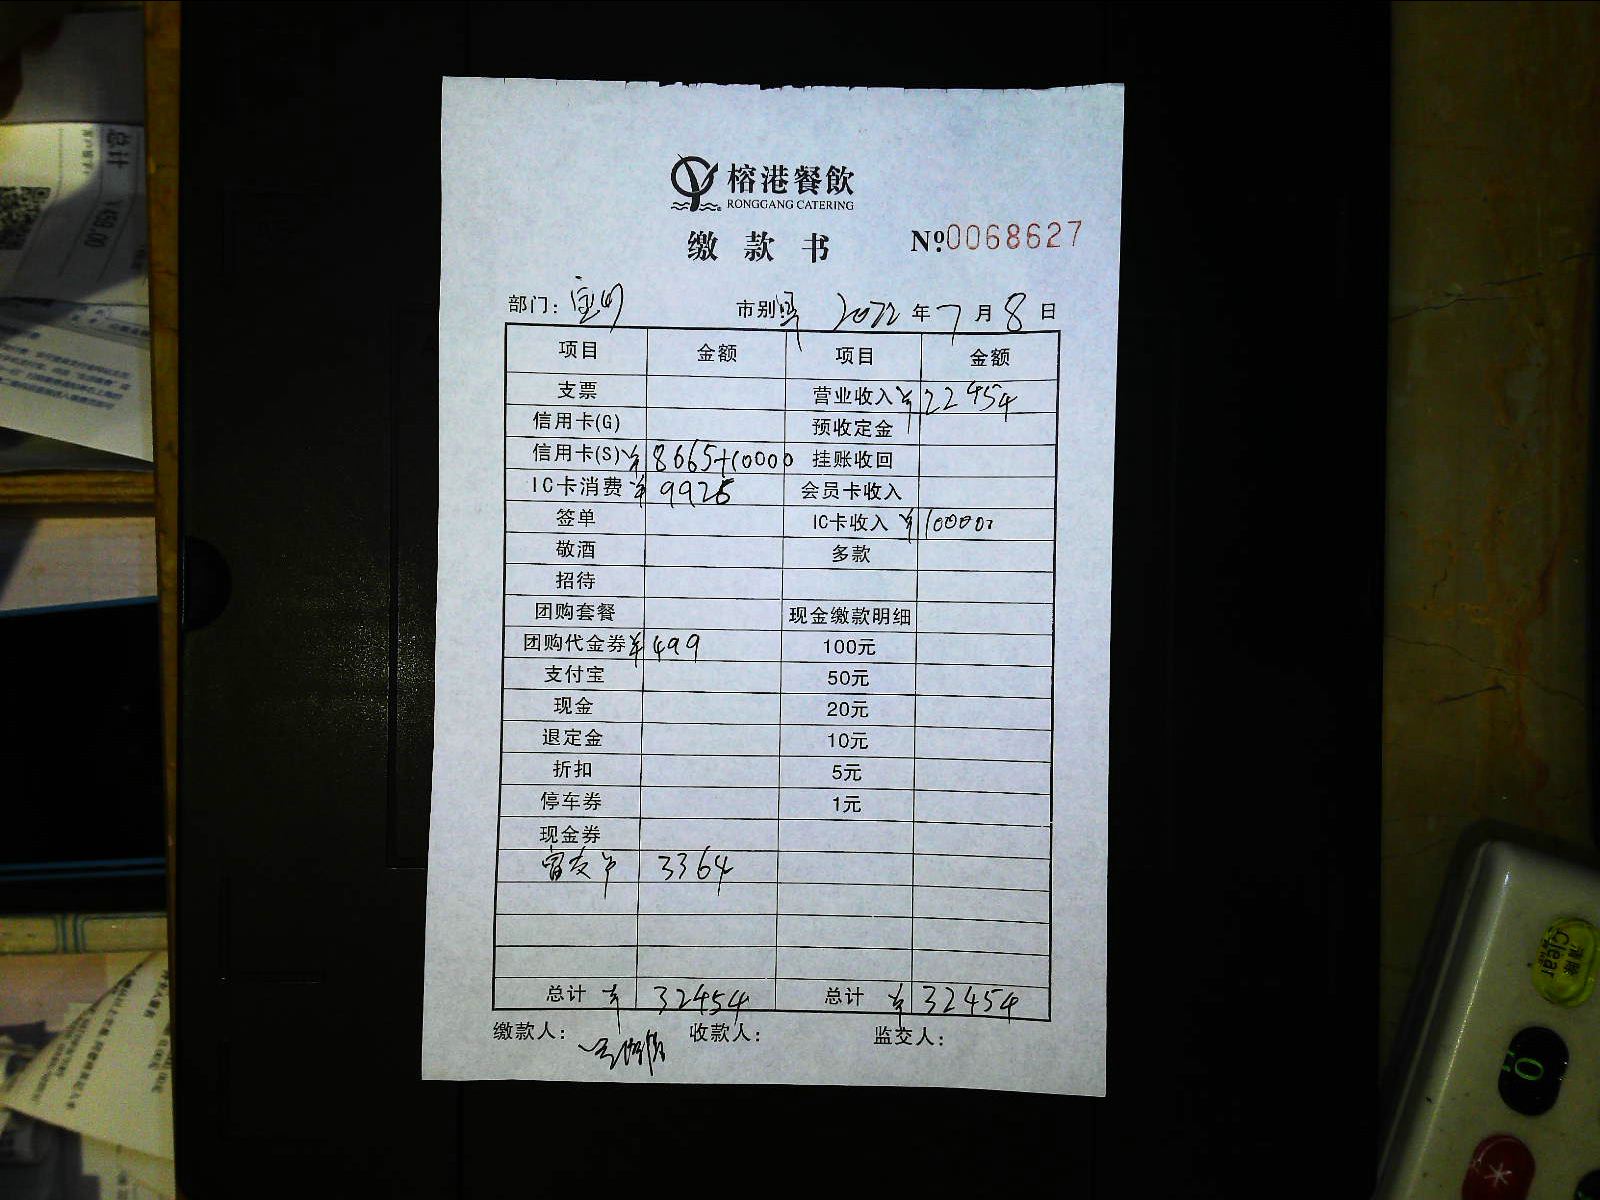 榕港餐飲
RONGGANG CATERING
缴款书 Nº 0068627
部门: 市别 2022年7月8日
项目 金额 项目 金额
支票 营业收入 ¥22454
信用卡(G) 预收定金
信用卡(S) ¥8665+10000 挂账收回
IC卡消费 ¥9926 会员卡收入
签单 IC卡收入 ¥10000
敬酒 多款
招待
团购套餐 现金缴款明细
团购代金券 ¥499 100元
支付宝 50元
现金 20元
退定金 10元
折扣 5元
停车券 1元
现金券
3364
总计 ¥32454 总计 ¥32454
缴款人: 收款人: 监交人:
总计
¥459.00
清除
Clear
0
*